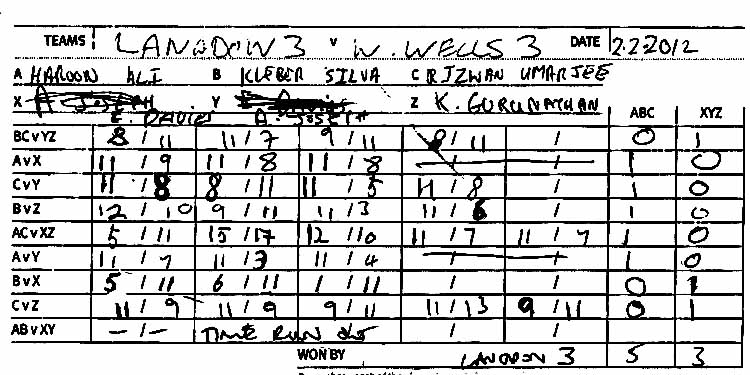 TEAMS LANGDON 3 V W. WELLS 3 DATE 2.2.2012
A HAROON ALI B KLEBER SILVA C RIZWAN UMARJEE
X A JOSEPH Y E DAVIES Z K. GURUNATHAN ABC XYZ
E. DAVIES A. JOSEPH
BCvYZ 8 / 11 11 / 7 9 / 11 8 / 11 / 0 1
AvX 11 / 9 11 / 8 11 / 8 / / 1 0
CvY 11 / 8 8 / 11 11 / 5 11 / 8 / 1 0
BvZ 12 / 10 9 / 11 11 / 3 11 / 6 / 1 0
ACvXZ 5 / 11 15 / 17 12 / 10 11 / 7 11 / 7 1 0
AvY 11 / 7 11 / 3 11 / 4 / / 1 0
BvX 5 / 11 6 / 11 1 / 11 / / 0 1
CvZ 11 / 9 11 / 9 9 / 11 11 / 13 9 / 11 0 1
ABvXY - / - TIME RUN OUT / /
WON BY LANGDON 3 5 3